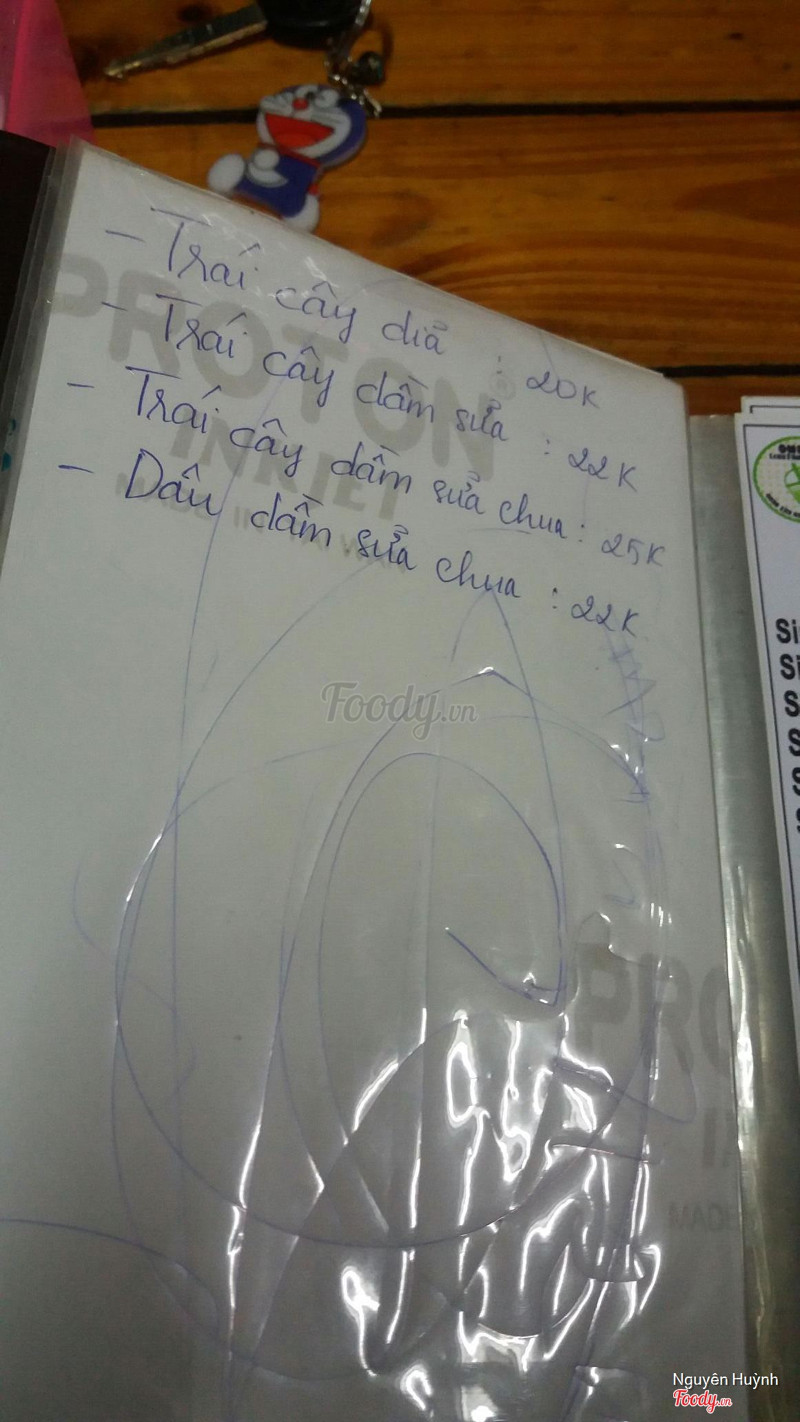 - Trái cây dĩa : 20K
- Trái cây dầm sửa : 22K
- Trái cây dầm sửa chua : 25K
- Dâu dầm sửa chua : 22K
PROTON
INKJET
Foody.vn
PRO
MADE
Nguyên Huỳnh
Foody.vn